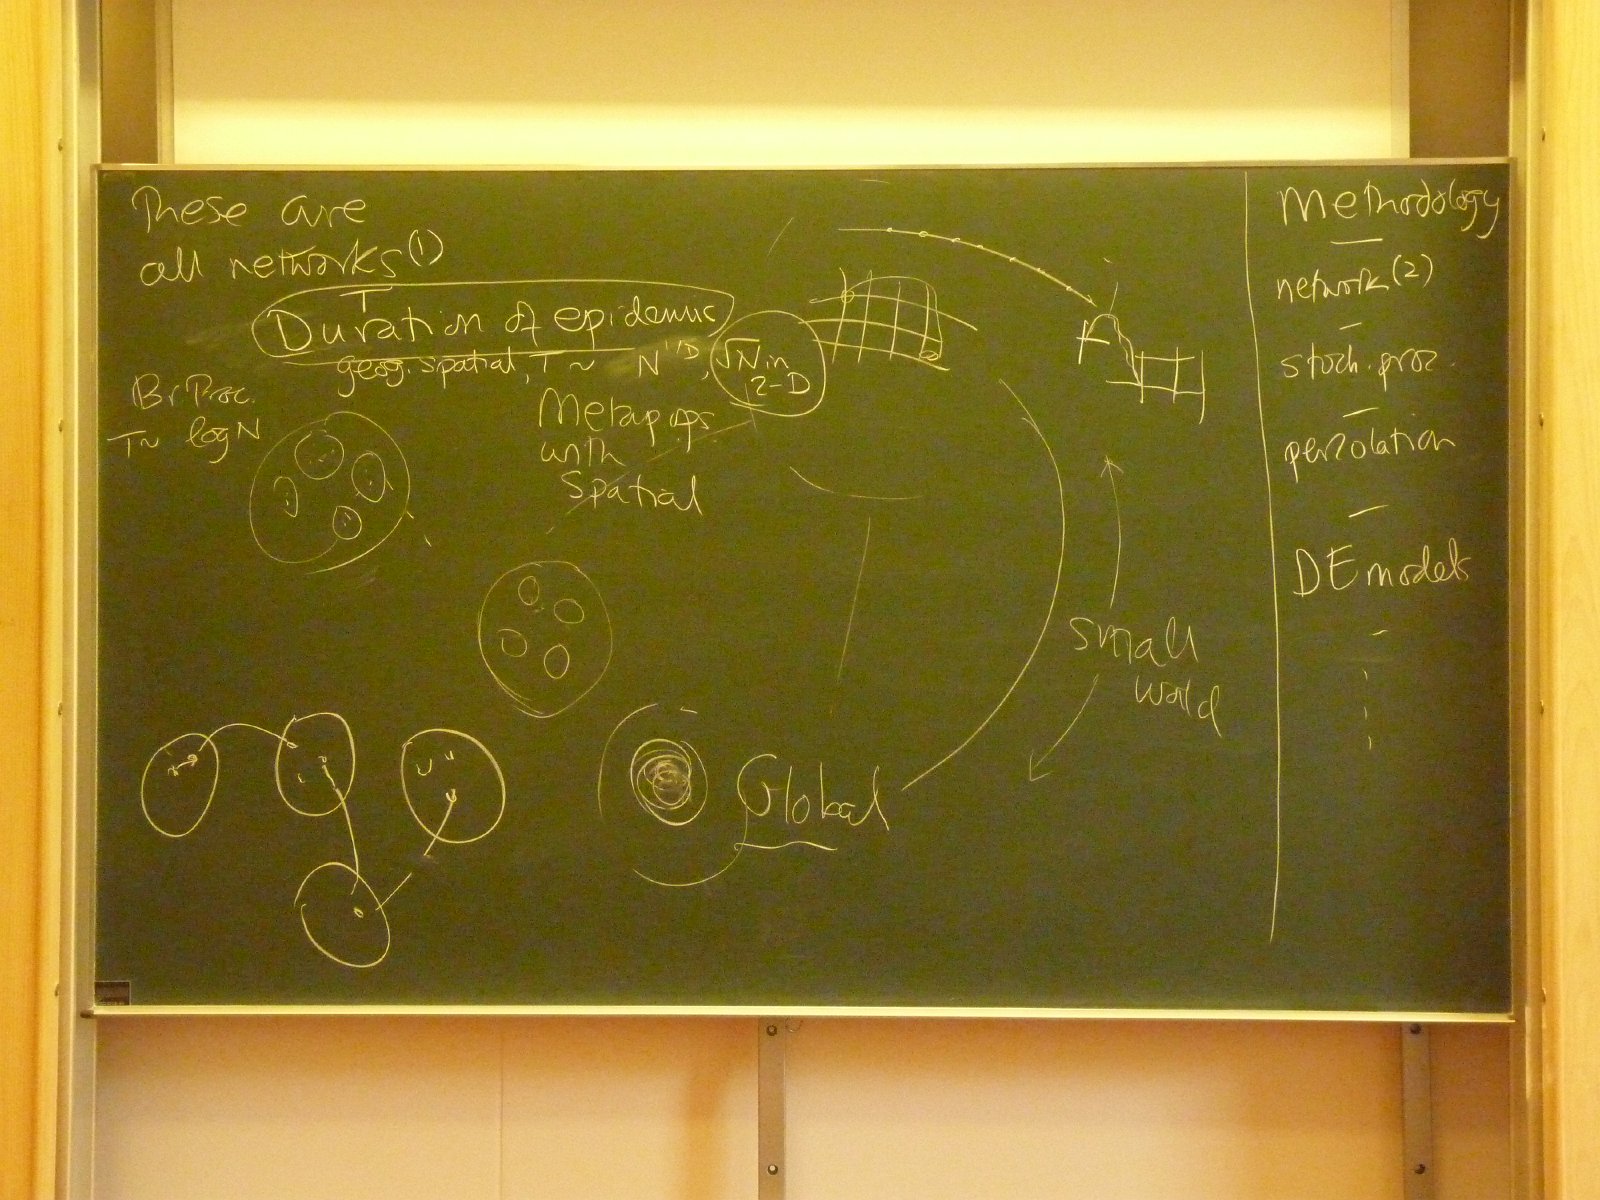 These are
all networks(1)
T
Duration of epidemic
geog. spatial, T ~ N^1/D, √N in
2-D
Br. Proc.
T ~ log N
Metapops
with
Spatial
Global
small
world
Methodology
network(2)
stoch. proc.
percolation
DE models